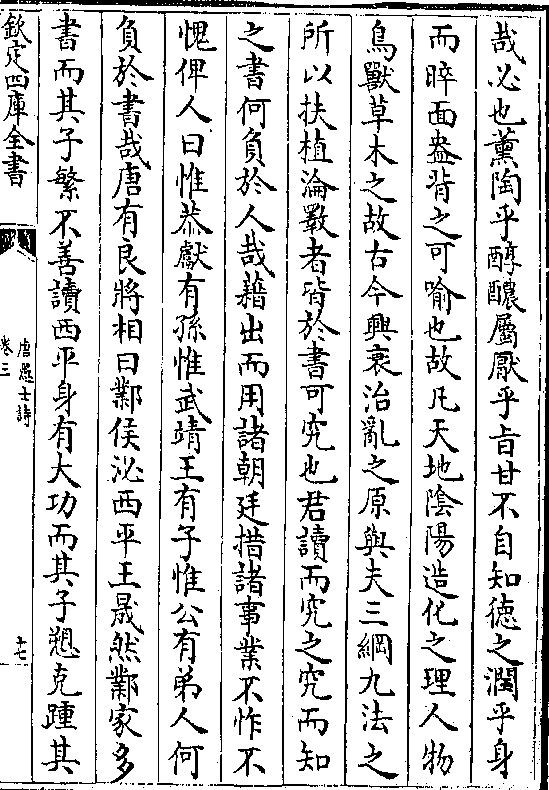 哉必也薰陶乎醇醲屬厭乎旨甘不自知徳之潤乎身
而睟面盎背之可喻也故凡天地隂陽造化之理人物
鳥獸草木之故古今興衰治亂之原與夫三綱九法之
所以扶植淪斁者皆於書可究也君讀而究之究而知
之書何負於人哉藉出而用諸朝廷措諸事業不怍不
愧俾人曰惟恭獻有孫惟武靖王有子惟公有弟人何
負於書哉唐有良將相曰鄴侯泌西平王晟然鄴家多
書而其子繁不善讀西平身有大功而其子愬克踵其
欽定四庫全書
唐愚士詩
卷三
十七